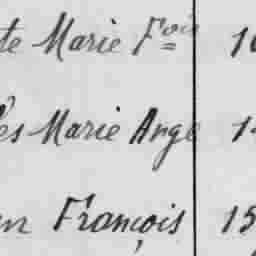 te Marie Fois 1
es Marie Ange 1
n François 15